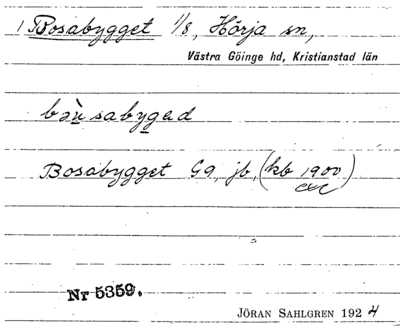 1 Bosabygget 1/8, Hörja sn,
Västra Göinge hd, Kristianstad län
bəu̠sabygəd
Bosabygget G9, jb, (kb 1900)
Nr 5359.
JÖRAN SAHLGREN 1924